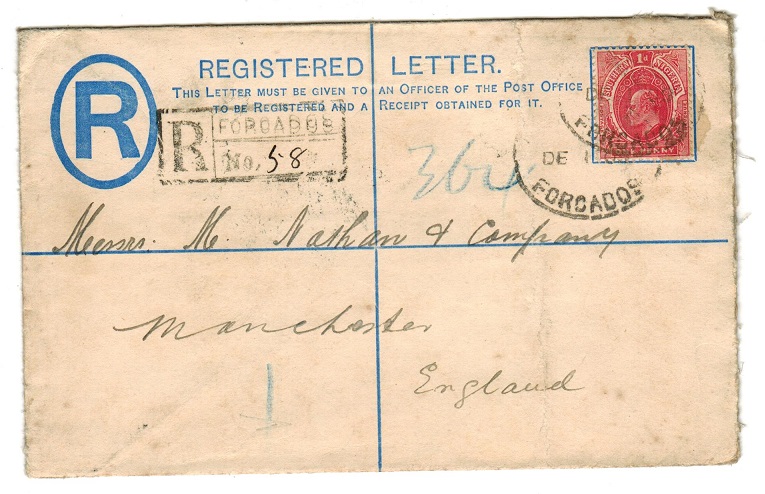 REGISTERED LETTER.
THIS LETTER MUST BE GIVEN TO AN OFFICER OF THE POST OFFICE
TO BE REGISTERED AND A RECEIPT OBTAINED FOR IT.
R
R FORCADOS
No. 58
SOUTHERN 1d NIGERIA
FORCADOS
DE
FORCADOS
364
Messrs. M. Nathan & Company
Manchester
England
1